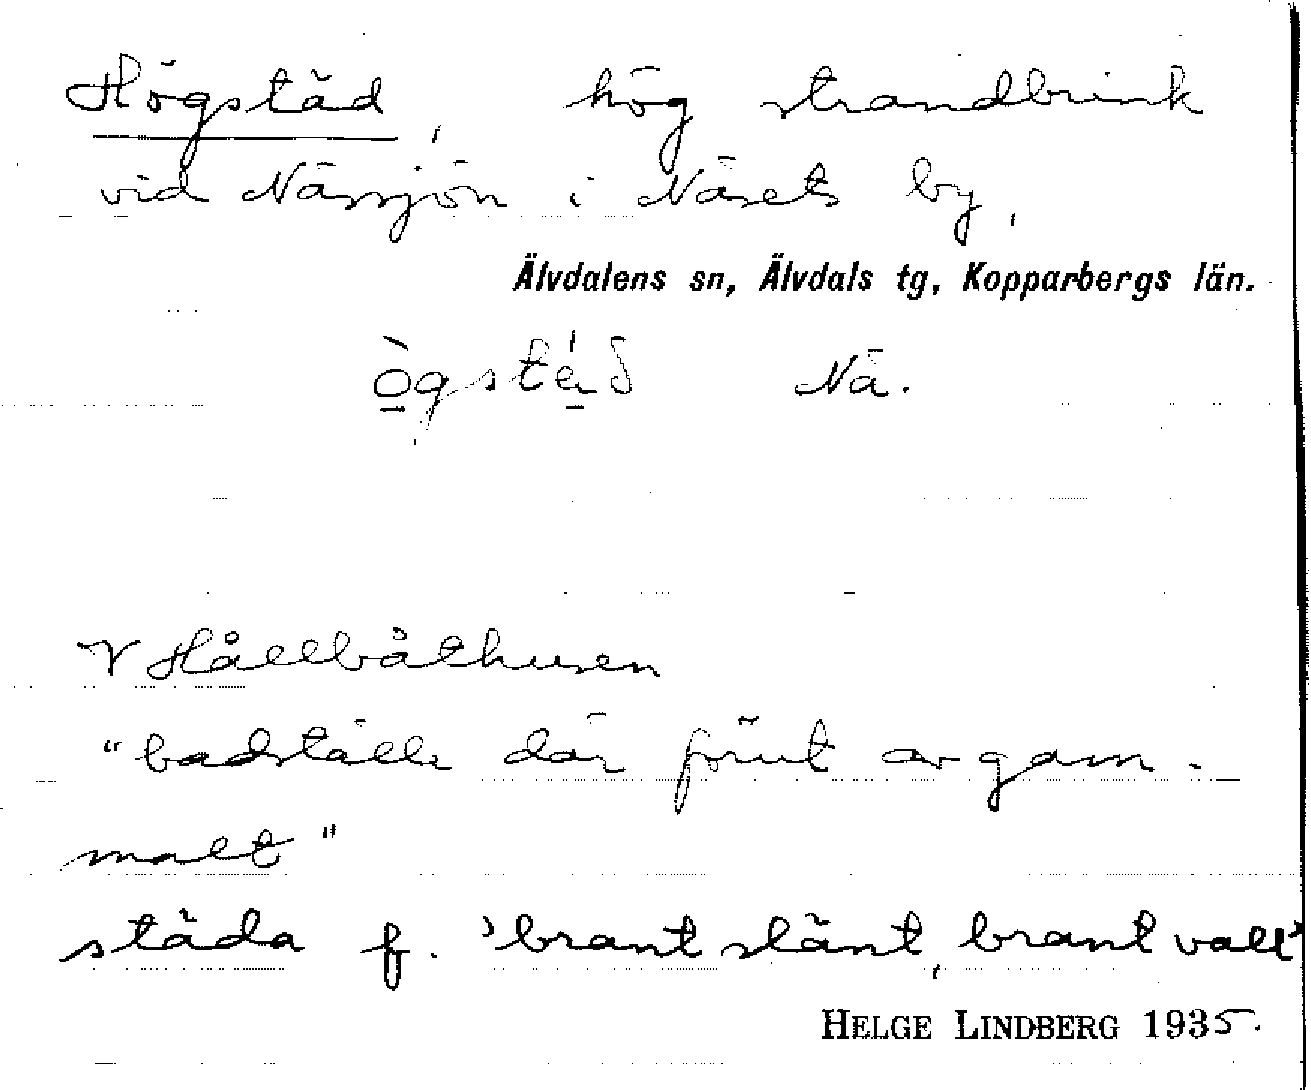 Högstäd, hög strandbrink
vid Nässjön i Näsets by,
Älvdalens sn, Älvdals tg, Kopparbergs län.
Nä.
V Hållbåthusen
"badställe där förut av gam-
malt"
städa f. 'brant slänt, brant vall'
HELGE LINDBERG 1935.